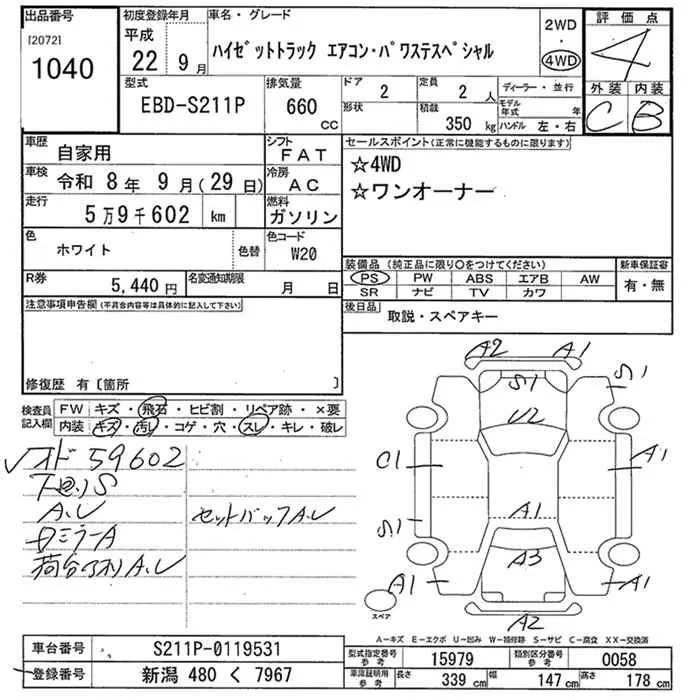 出品番号
[2072]
1040
初度登録年月
平成
22 9 月
車名・グレード
ハイゼットトラック エアコン・パワステスペシャル
2WD
4WD
評価点
4
外装 内装
C B
型式
EBD-S211P
排気量
660 CC
ドア 2
形状
定員 2 人
積載 350 kg
ディーラー・並行
モデル年式 年
ハンドル 左・右
車歴 自家用
シフト FAT
車検 令和 8年 9月(29日)
冷房 AC
走行 5万9千602 km
燃料 ガソリン
色 ホワイト 色替
色コード W20
R券 5,440 円
名変通知期限 月 日
注意事項申告欄(不具合内容等は具体的に記入して下さい)
修復歴 有〔箇所 〕
セールスポイント(正常に機能するものに限ります)
☆4WD
☆ワンオーナー
装備品(純正品に限り○をつけてください)
PS PW ABS エアB AW
SR ナビ TV カワ
新車保証書
有・無
後日品 取説・スペアキー
検査員記入欄
FW キズ・飛石・ヒビ割・リペア跡・×要
内装 キズ・汚レ・コゲ・穴・スレ・キレ・破レ
オド 59602
A.U
セットバックA.U
A2 A1
S1 S1
U2
C1 A1
S1 A1
A3
A1 A1
A2
スペア
A-キズ E-エクボ U-凹み W-補修跡 S-サビ C-腐食 XX-交換済
車台番号 S211P-0119531
登録番号 新潟 480 く 7967
型式指定番号 参考 15979
類別区分番号 参考 0058
車庫証明用 参考
長さ 339 cm 幅 147 cm 高さ 178 cm